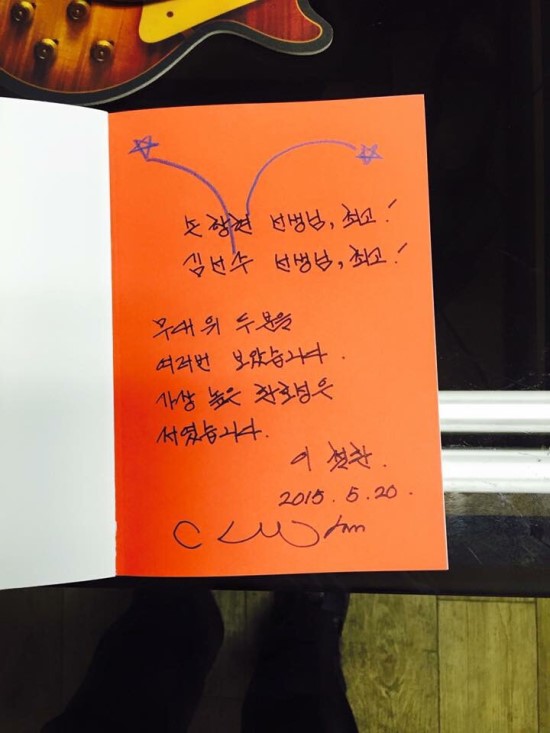 손창현 선생님, 최고!
김선수 선생님, 최고!
무대 위 두분을
여러번 보았습니다.
가장 높은 환호성은
서였습니다.
이 철환.
2015. 5. 20.